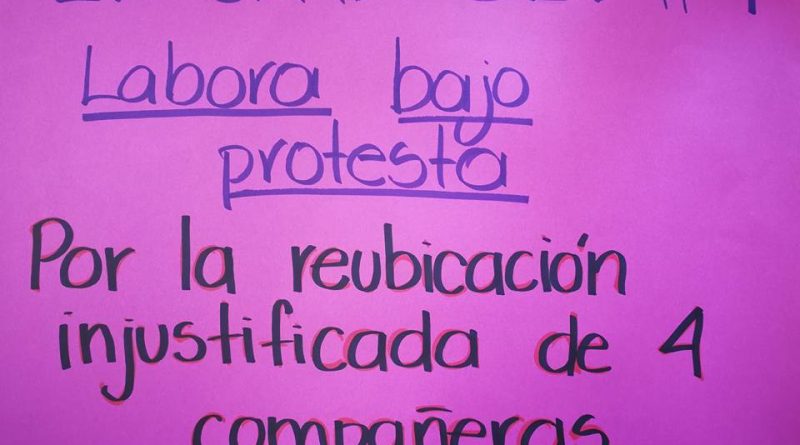 Labora bajo
protesta
Por la reubicación
injustificada de 4
compañeras